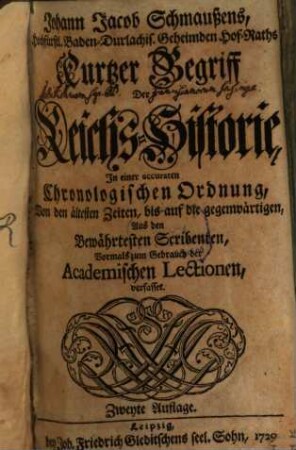 Johann Jacob Schmaußens,
Hochfürstl. Baden-Durlachis. Geheimden Hof-Raths
Kurtzer Begriff
Der
Reichs-Historie,
In einer accuraten
Chronologischen Ordnung,
Von den ältesten Zeiten, bis auf die gegenwärtigen,
Aus den
Bewährtesten Scribenten,
Vormals zum Gebrauch der
Academischen Lectionen,
verfasset.
Zweyte Auflage.
Leipzig,
bey Joh. Friedrich Gleditschens seel. Sohn, 1729